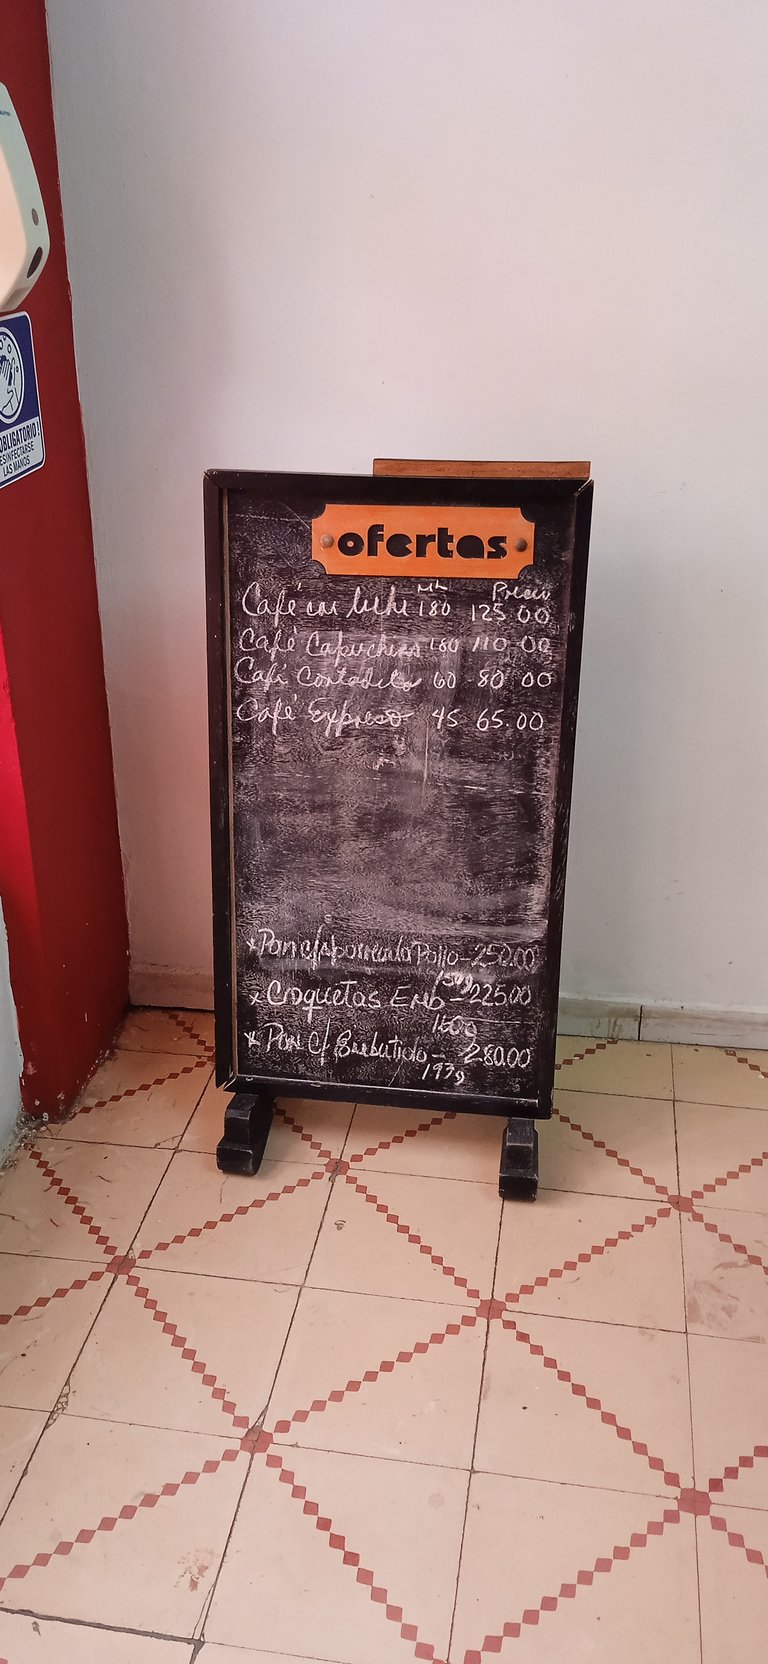 OBLIGATORIO!
DESINFECTARSE
LAS MANOS
ofertas
ML Precio
Café con leche 180 125.00
Café Capuchino 180 110.00
Café Cortadito 60 80 00
Café Expreso 45 65.00
x Pan c/ Pollo - 250.00
150g
x Croquetas Emp - 225.00
x Pan c/ Embutido - 280.00